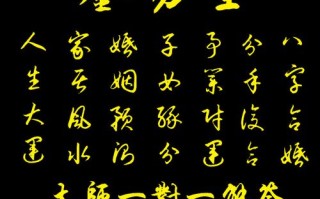 八字合婚
分手復合
事業財運
子女緣分
婚姻預測
家居風水
人生大運
大師一對一解答